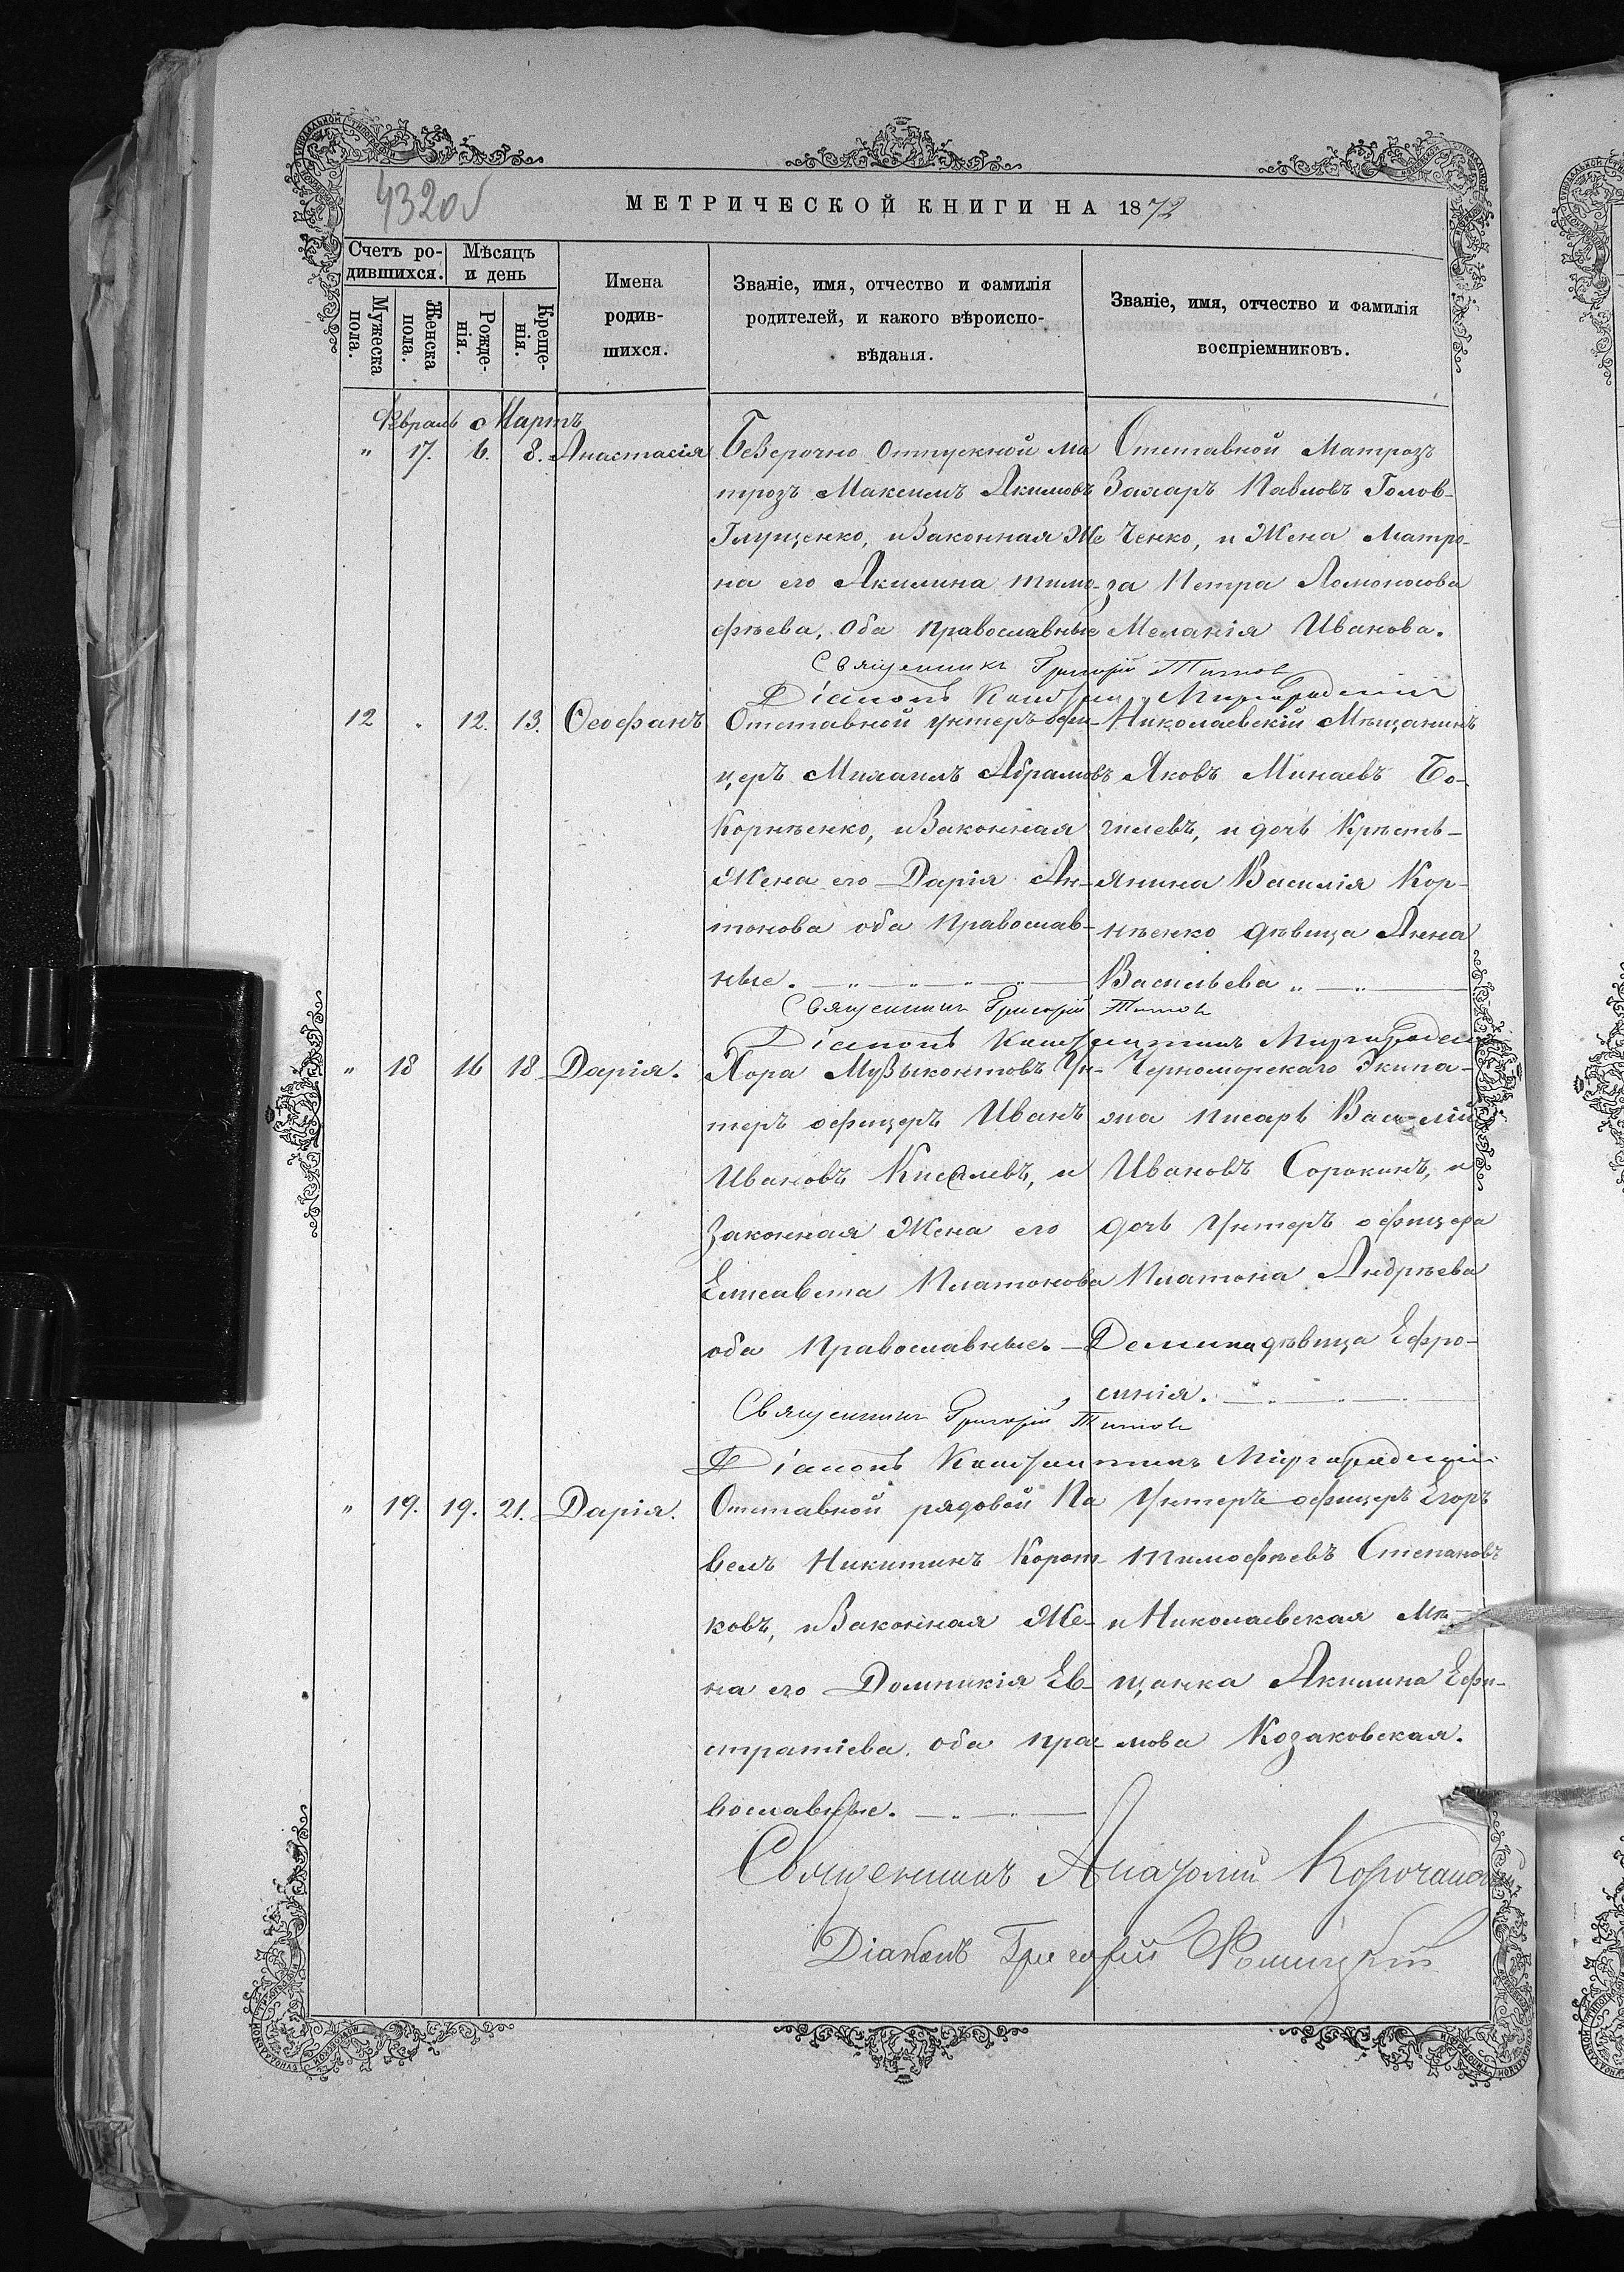 432об
МЕТРИЧЕСКОЙ КНИГИ НА 1872
Счетъ ро-
дившихся.
Мѣсяцъ
и день
Мужеска
пола.
Женска
пола.
Рожде-
нія.
Креще-
нія.
Имена
родив-
шихся.
Званіе, имя, отчество и фамилія
родителей, и какого вѣроиспо-
вѣданія.
Званіе, имя, отчество и фамилія
воспріемниковъ.
Февраль Мартъ
" 17. 6. 8. Анастасія
Безсрочно отпускной ма
трозъ Максимъ Акимовъ
Глущенко, и Законная Же
на его Акилина Тимо-
фѣева, оба Православные
Отставной Матрозъ
Захаръ Павловъ Голов-
ченко, и Жена Матро-
за Петра Ломоносова
Меланія Иванова.
Священникъ Григорій Титовъ
Діаконъ Константинъ Миргородскій
12 " 12. 13. Ѳеофанъ
Отставной унтеръ офи-
церъ Михаилъ Абрамовъ
Корнѣенко, и Законная
Жена его Дарія Ан-
тонова оба Православ-
ные.
Николаевскій Мѣщанинъ
Яковъ Минаевъ Бо-
гилевъ, и дочь Крѣсть-
янина Василія Кор-
нѣенко дѣвица Анна
Васильева
Священникъ Григорій Титовъ
Діаконъ Константинъ Миргородскій
" 18 16 18 Дарія.
Хора Музыкантовъ Ун-
теръ офицеръ Иванъ
Ивановъ Киселевъ, и
Законная Жена его
Елисавета Платонова
оба Православные.
Черноморскаго Экипа-
жа писарь Василій
Ивановъ Сорокинъ, и
дочь Унтеръ офицера
Платона Андрѣева
Демина дѣвица Ефро-
синія.
Священникъ Григорій Титовъ
Діаконъ Константинъ Миргородскій
" 19. 19. 21. Дарія.
Отставной рядовой Па
велъ Никитинъ Корот-
ковъ, и Законная Же-
на его Домникія Ев-
стратіева, оба пра-
вославные.
Унтеръ офицеръ Егоръ
Тимофѣевъ Степановъ
и Николаевская Мѣ-
щанка Акилина Ефи-
мова Козаковская.
Священникъ Анатолій
Діаконъ Григорій